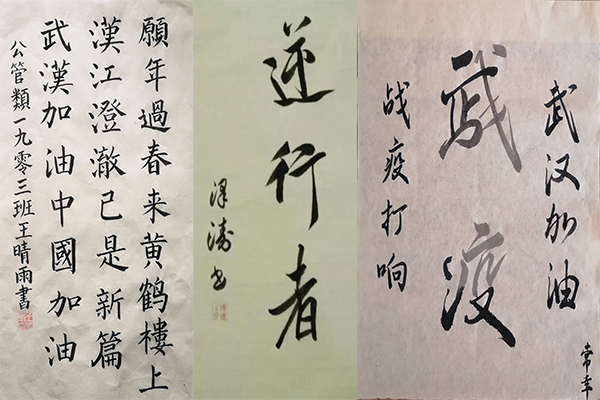 願年過春来黄鹤樓上
漢江澄澈已是新篇
武漢加油中國加油
公管類一九零三班王晴雨書
逆行者
泽涛书
武汉加油
疫
战疫打响